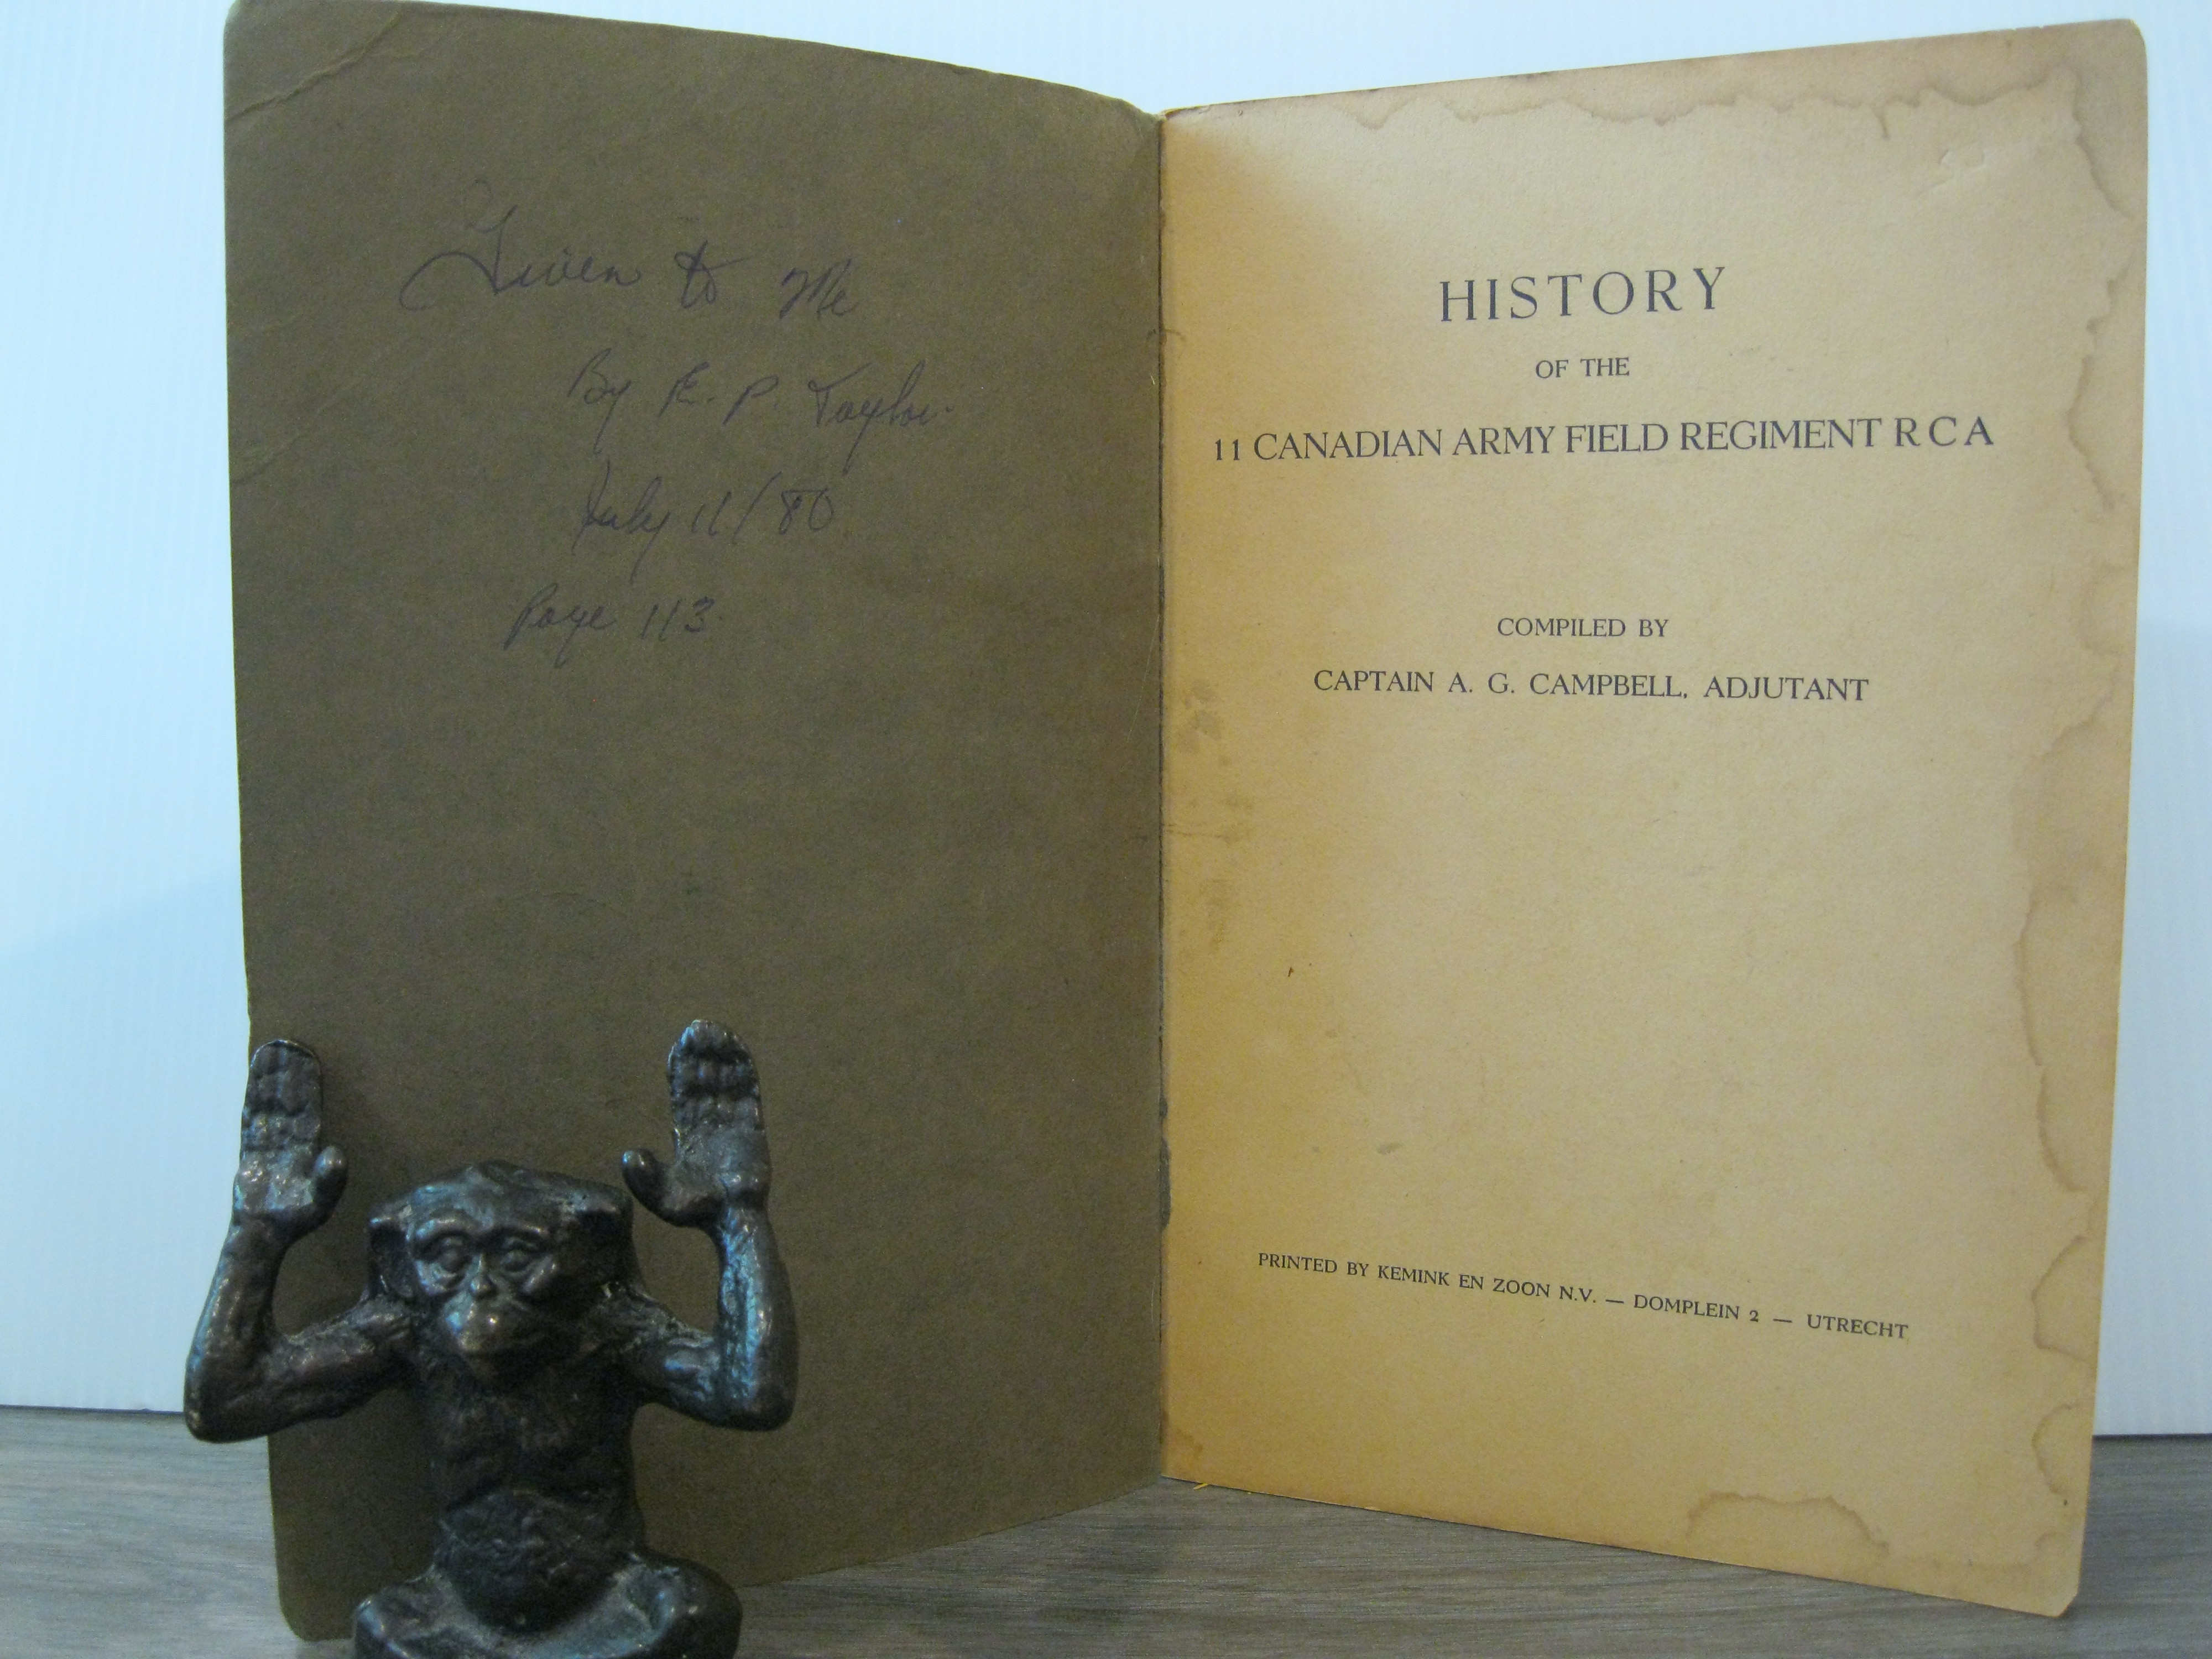 Given to Me
By E. P. Taylor.
July 11/80
Page 113.
HISTORY
OF THE
11 CANADIAN ARMY FIELD REGIMENT R C A
COMPILED BY
CAPTAIN A. G. CAMPBELL, ADJUTANT
PRINTED BY KEMINK EN ZOON N.V. — DOMPLEIN 2 — UTRECHT